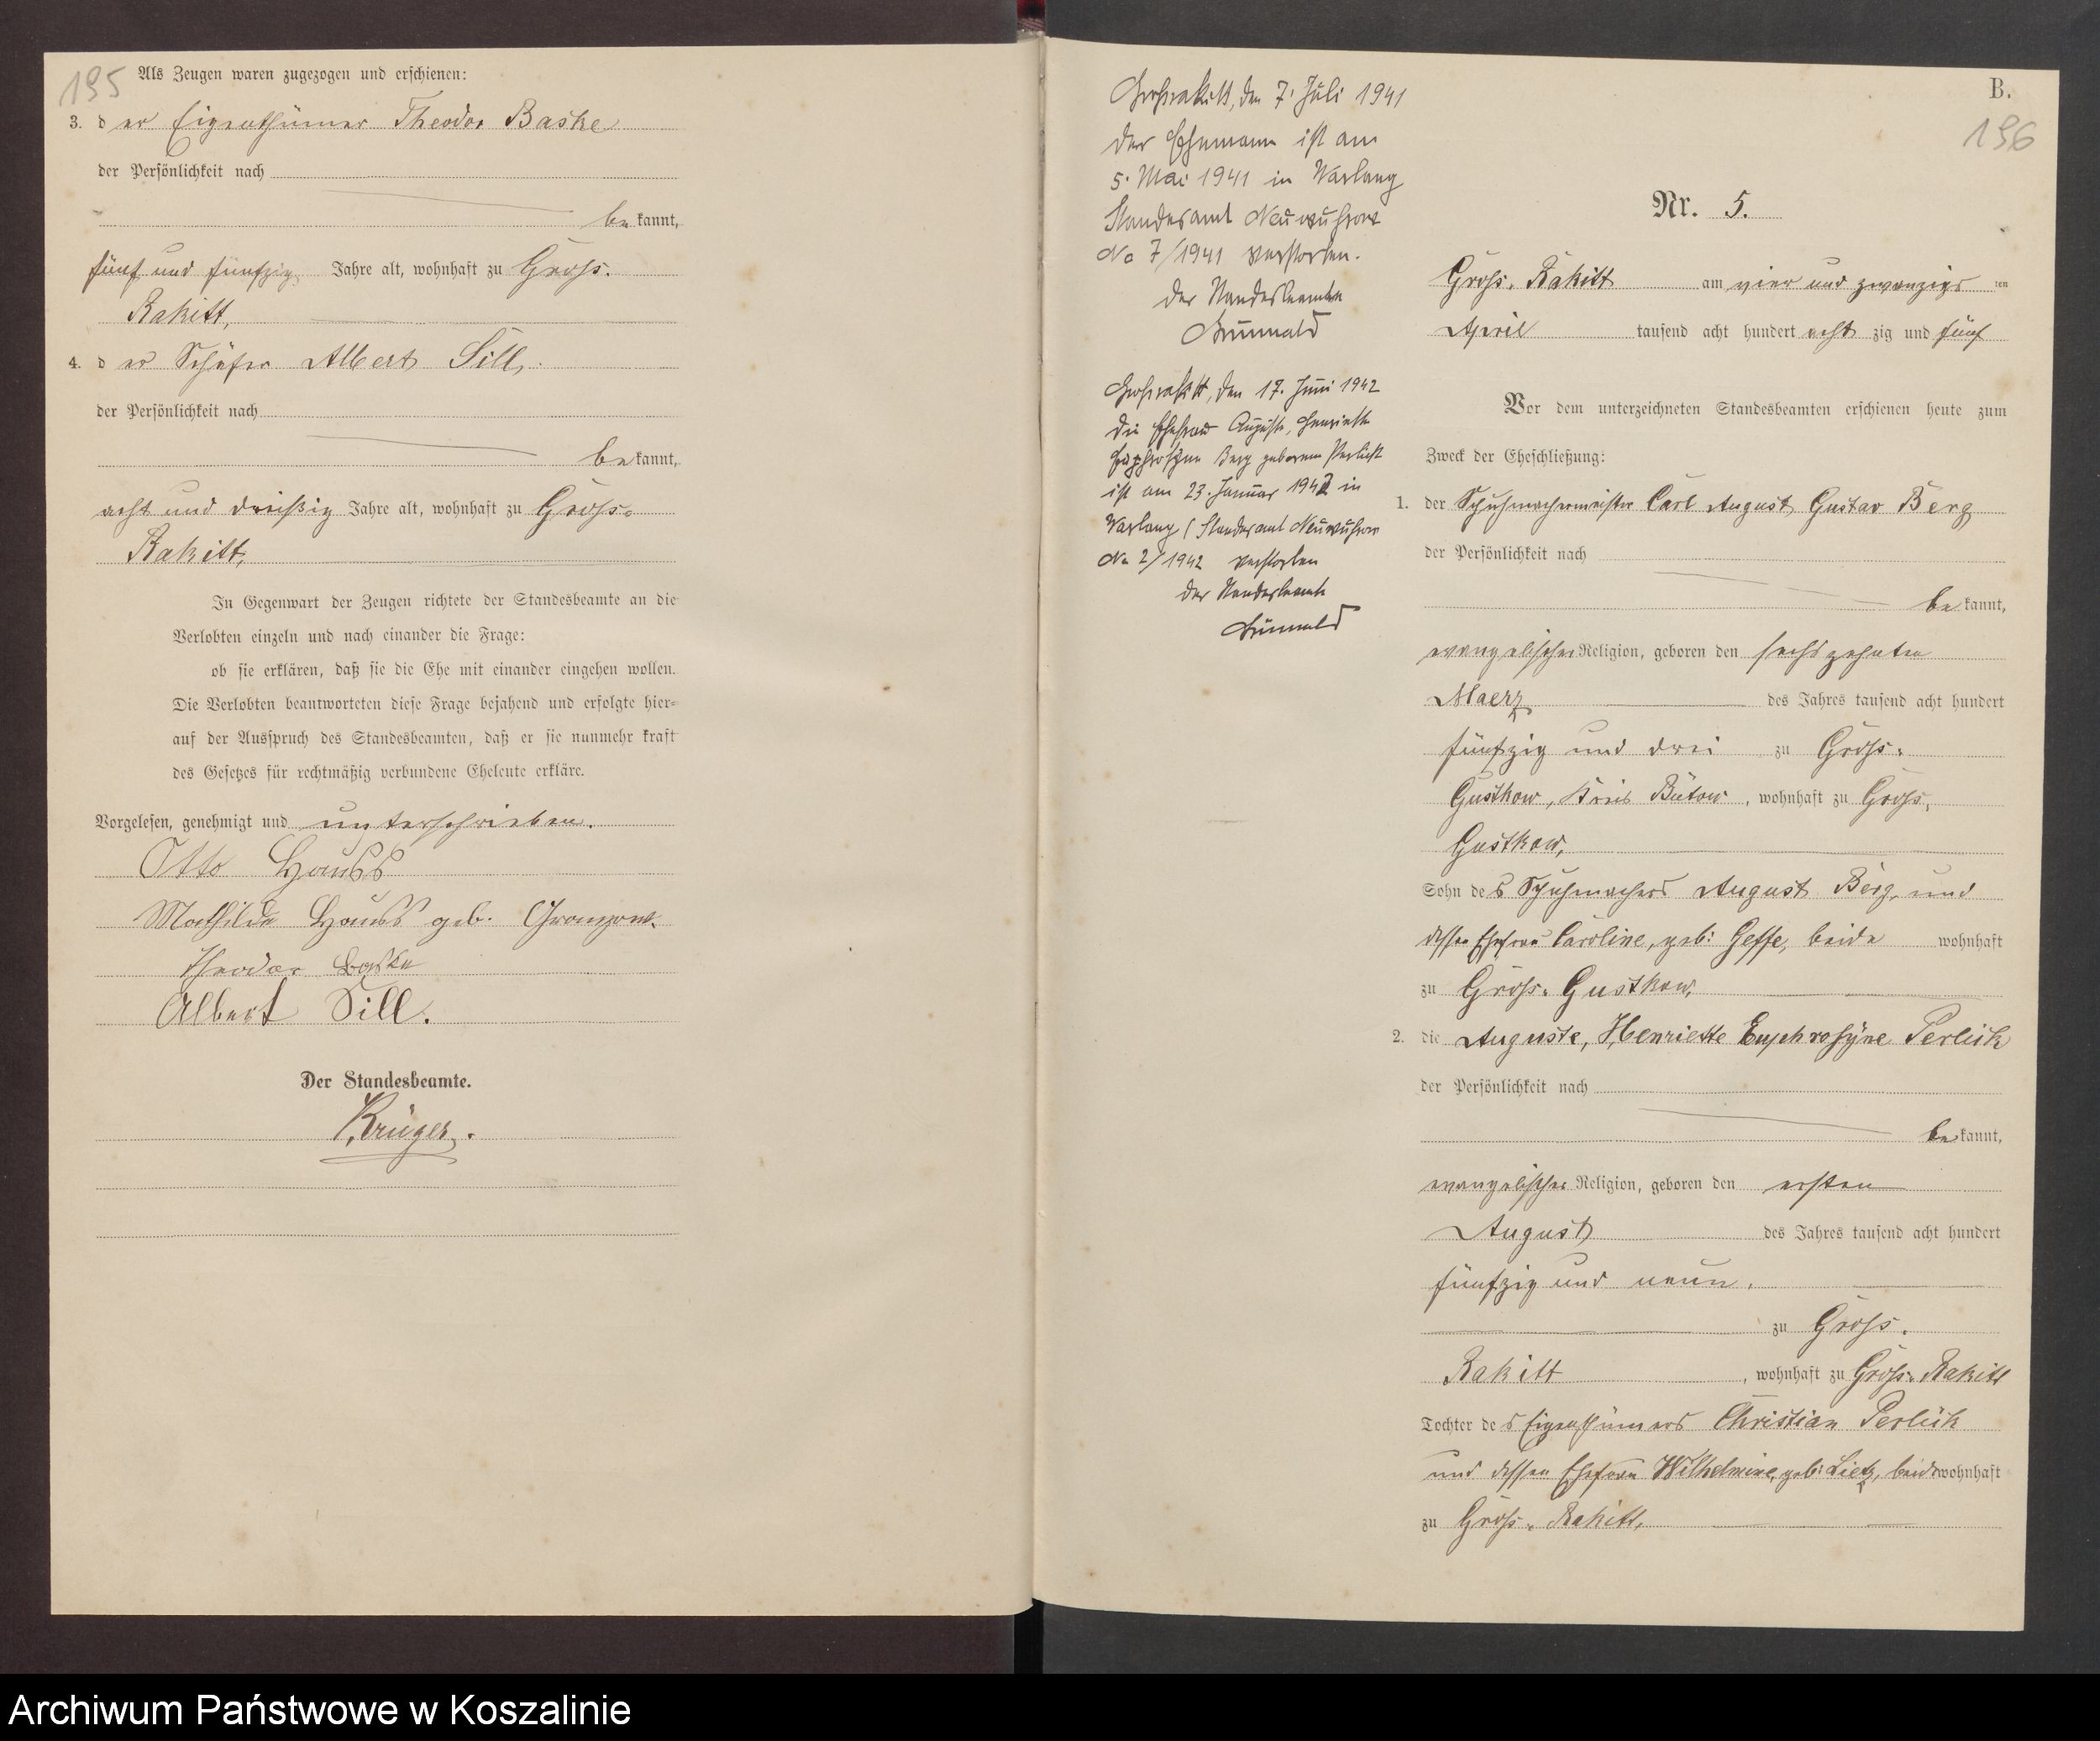 195
Als Zeugen waren zugezogen und erschienen:
3. der Eigenthümer Theodor Baske
der Persönlichkeit nach
bekannt,
fünf und fünfzig Jahre alt, wohnhaft zu Gross-
Rakitt,
4. der Schäfer Albert Sill,
der Persönlichkeit nach
bekannt,
acht und dreißig Jahre alt, wohnhaft zu Gross-
Rakitt,
In Gegenwart der Zeugen richtete der Standesbeamte an die
Verlobten einzeln und nach einander die Frage:
ob sie erklären, daß sie die Ehe mit einander eingehen wollen.
Die Verlobten beantworteten diese Frage bejahend und erfolgte hier-
auf der Ausspruch des Standesbeamten, daß er sie nunmehr kraft
des Gesetzes für rechtmäßig verbundene Eheleute erkläre.
Vorgelesen, genehmigt und unterschrieben.
Otto
Mathilde geb.
Theodor Baske
Albert Sill.
Der Standesbeamte.
Krüger.
Großrakitt, den 7. Juli 1941
Der Ehemann ist am
5. Mai 1941 in Warlang
Standesamt Neuwuhrow
No 7/1941 verstorben.
Der Standesbeamte
Grünwald
Großrakitt, den 17. Juni 1942
Die Ehefrau Auguste, Henriette
Euphrosyne Berg geborene Perlick
ist am 23. Januar 1942 in
Warlang (Standesamt Neuwuhrow
No 2/1942 verstorben
Der Standesbeamte
Grünwald
B.
196
Nr. 5.
Gross-Rakitt am vier und zwanzigsten
April tausend acht hundert acht zig und fünf
Vor dem unterzeichneten Standesbeamten erschienen heute zum
Zweck der Eheschließung:
1. der Schuhmachermeister Carl August Gustav Berg
der Persönlichkeit nach
bekannt,
evangelischer Religion, geboren den sechszehnten
Maerz des Jahres tausend acht hundert
fünfzig und drei zu Gross-
Gustkow, Kreis Bütow, wohnhaft zu Gross-
Gustkow,
Sohn des Schuhmachers August Berg und
dessen Ehefrau Caroline, geb: Geffe, beide wohnhaft
zu Gross-Gustkow,
2. die Auguste, Henriette Euphrosÿne Perlick
der Persönlichkeit nach
bekannt,
evangelischer Religion, geboren den ersten
August des Jahres tausend acht hundert
fünfzig und neun,
zu Gross-
Rakitt, wohnhaft zu Gross-Rakitt
Tochter des Eigenthümers Christian Perlick
und dessen Ehefrau Wilhelmine, geb: Lietz, beide wohnhaft
zu Gross-Rakitt,
Archiwum Państwowe w Koszalinie